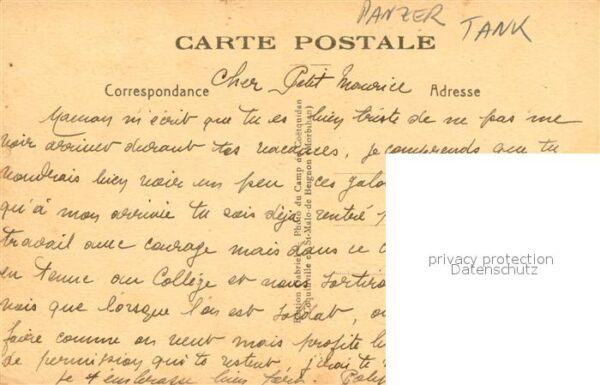 PANZER TANK
CARTE POSTALE
Correspondance Cher Petit Maurice Adresse
Maman m'écrit que tu es bien triste de ne pas me
voir arriver durant tes vacances, je comprends que tu
voudrais bien voir un peu ces
qu'à mon arrivée tu sois déjà rentré
travail avec courage mais dans ce
en tenue au Collège et nous
mais que lorsque l'on est soldat, on
faire comme on veut mais profite
de permission qui te restent j'irai te
Je t'embrasse bien fort.
Edition Gabriel, Photo du Camp de Coëtquidan
St-Malo de Beignon (Morbihan)
privacy protection
Datenschutz